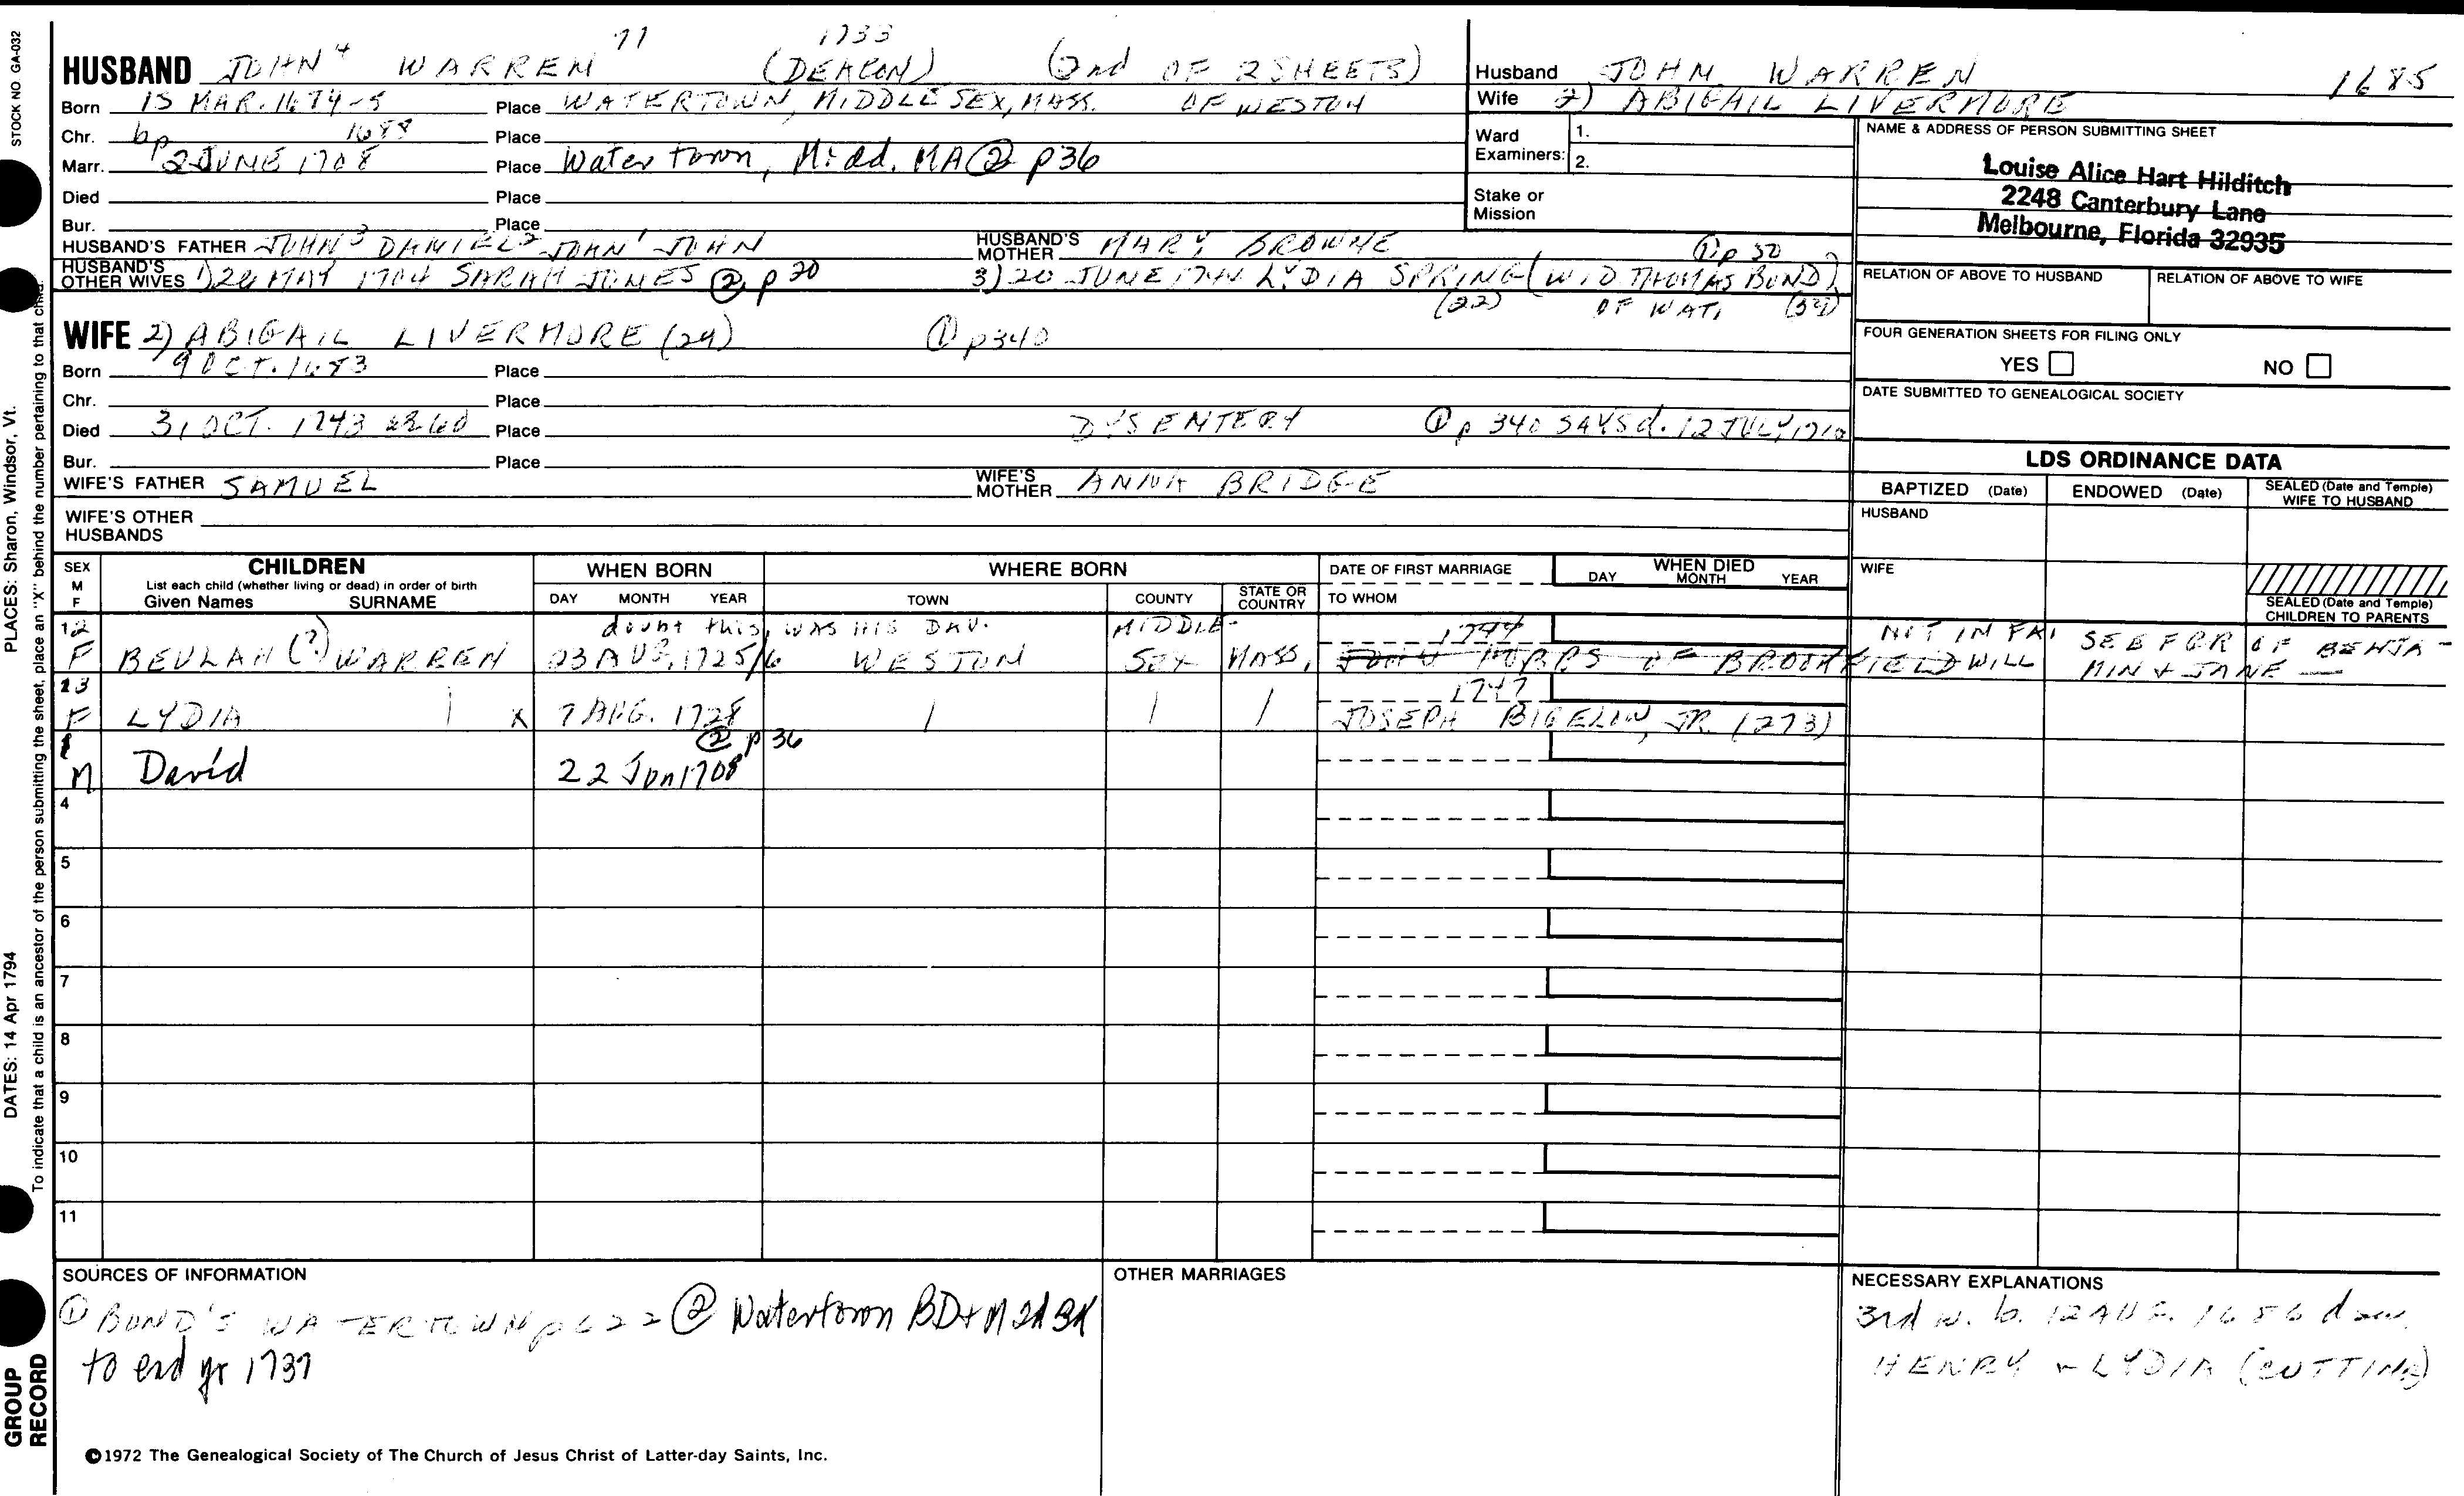 STOCK NO. GA-032
PLACES: Sharon, Windsor, Vt.
DATES: 14 Apr 1794
To indicate that a child is an ancestor of the person submitting the sheet, place an "X" behind the number pertaining to that child.
GROUP RECORD
77 1733
HUSBAND JOHN 4 WARREN (DEACON) (2nd OF 2 SHEETS)
Born 15 MAR. 1684-5 Place WATERTOWN, MIDDLESEX, MASS. OF WESTON
Chr. bp 1688 Place
Marr. 2 JUNE 1708 Place Watertown, Midd. MA ② p36
Died Place
Bur. Place
HUSBAND'S FATHER JOHN 3 DANIEL 2 JOHN 1 JOHN HUSBAND'S MOTHER MARY BROWNE ① p 50
HUSBAND'S OTHER WIVES 1) 26 MAY 1704 SARAH JONES ② p 20 3) 20 JUNE 1744 LYDIA SPRING (WID THOMAS BOND)
(22) OF WAT. (54)
WIFE 2) ABIGAIL LIVERMORE (24) ① p340
Born 9 OCT. 1683 Place
Chr. Place
Died 31 OCT. 1743 ae 60 Place DYSENTERY ① p 340 SAYS d. 12 JULY, 1710
Bur. Place
WIFE'S FATHER SAMUEL WIFE'S MOTHER ANNA BRIDGE
WIFE'S OTHER HUSBANDS
Husband JOHN WARREN 1685
Wife 2) ABIGAIL LIVERMORE
Ward Examiners: 1. 2.
Stake or Mission
NAME & ADDRESS OF PERSON SUBMITTING SHEET
Louise Alice Hart Hilditch
2248 Canterbury Lane
Melbourne, Florida 32935
RELATION OF ABOVE TO HUSBAND RELATION OF ABOVE TO WIFE
FOUR GENERATION SHEETS FOR FILING ONLY
YES NO
DATE SUBMITTED TO GENEALOGICAL SOCIETY
LDS ORDINANCE DATA
BAPTIZED (Date) ENDOWED (Date) SEALED (Date and Temple) WIFE TO HUSBAND
HUSBAND
WIFE
SEALED (Date and Temple) CHILDREN TO PARENTS
SEX M F CHILDREN List each child (whether living or dead) in order of birth Given Names SURNAME
WHEN BORN DAY MONTH YEAR
WHERE BORN TOWN COUNTY STATE OR COUNTRY
DATE OF FIRST MARRIAGE TO WHOM
WHEN DIED DAY MONTH YEAR
12 doubt this was HIS DAU. MIDDLE- 1744 NOT IN FA. SEE FGR OF BENJA-
F BEULAH (?) WARREN 23 AUG. 1725/6 WESTON SEX MASS. JOHN HOBBS OF BROOKFIELD WILL MIN & JANE —
13 1747
F LYDIA X 7 AUG. 1728 JOSEPH BIGELOW, JR. (273)
1 ② p 36
M David 22 Jun 1708
4
5
6
7
8
9
10
11
SOURCES OF INFORMATION
① BOND'S WATERTOWN p 622 ② Watertown BD+M 2d Bk
to end yr 1737
OTHER MARRIAGES
NECESSARY EXPLANATIONS
3rd w. b. 12 AUG. 1686 dau.
HENRY & LYDIA (CUTTING)
©1972 The Genealogical Society of The Church of Jesus Christ of Latter-day Saints, Inc.